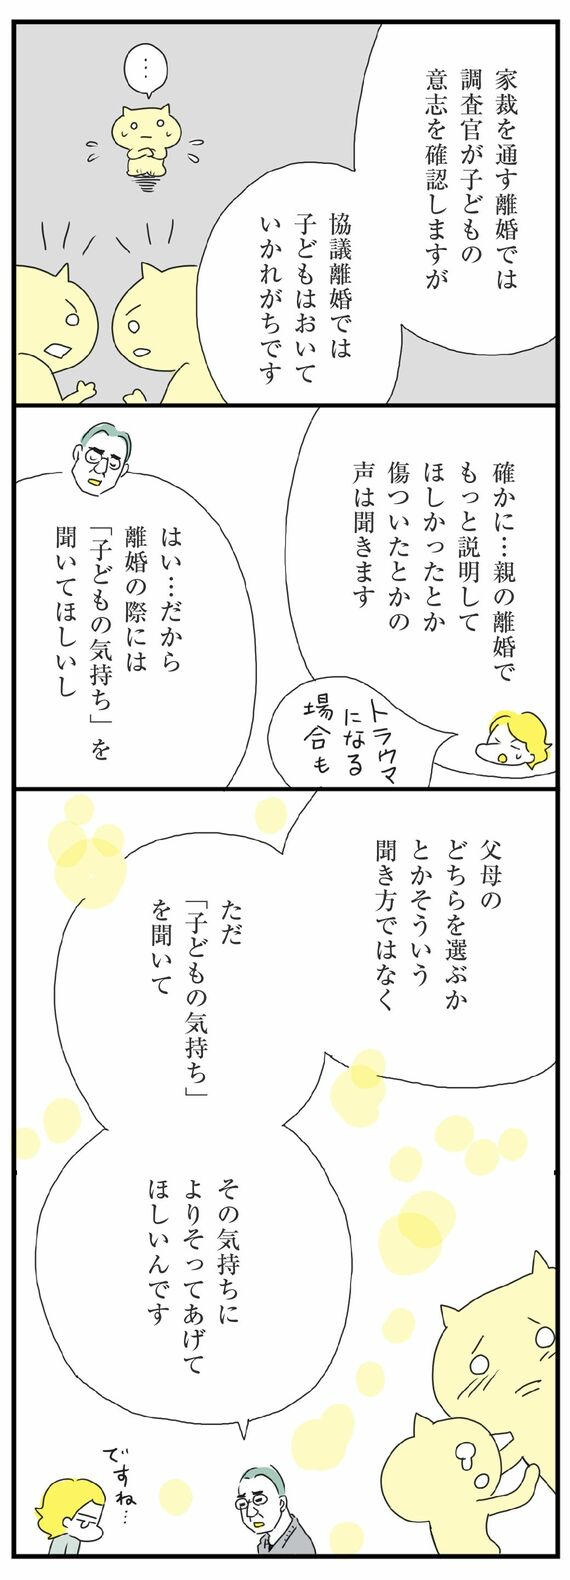 家裁を通す離婚では
調査官が子どもの
意志を確認しますが
協議離婚では
子どもはおいて
いかれがちです
…
確かに…親の離婚で
もっと説明して
ほしかったとか
傷ついたとかの
声は聞きます
トラウマ
になる
場合も
はい…だから
離婚の際には
「子どもの気持ち」を
聞いてほしいし
父母の
どちらを選ぶか
とかそういう
聞き方ではなく
ただ
「子どもの気持ち」
を聞いて
その気持ちに
よりそってあげて
ほしいんです
ですね…